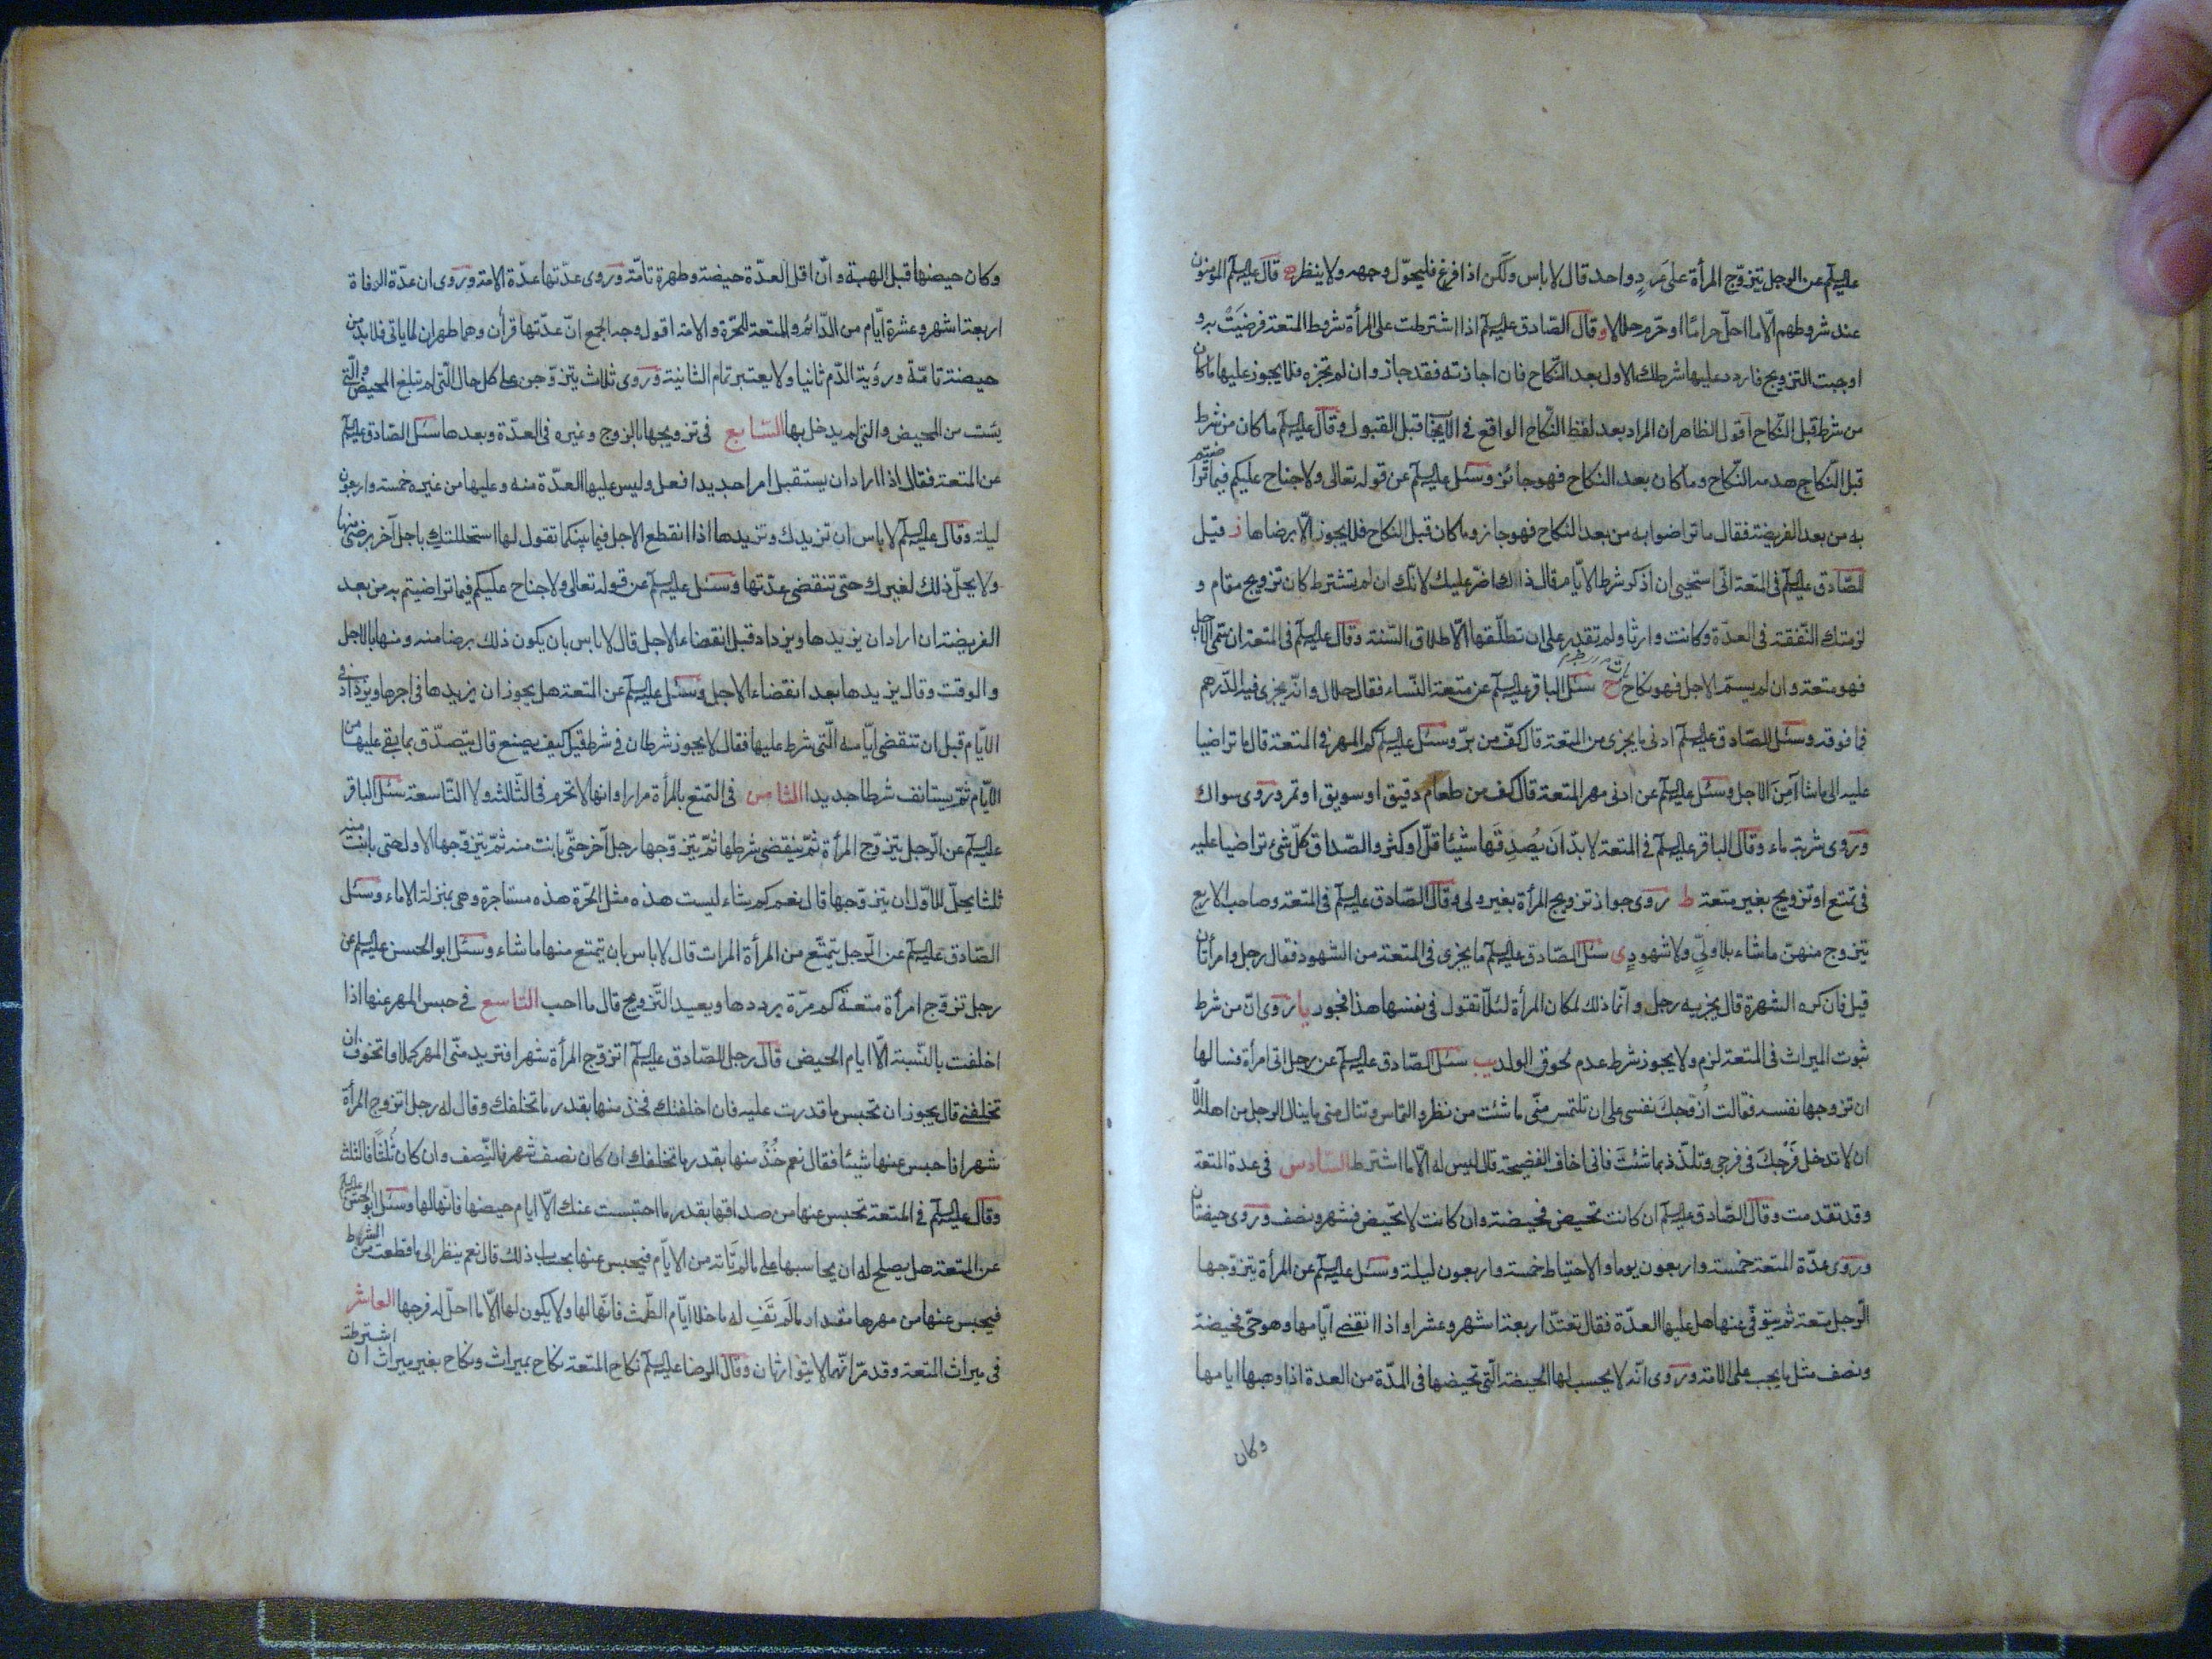 عليه السلم عن الرجل يتزوّج المرأة على عَردٍ واحد قال لاباس ولكن اذا فرغ فليحوّل وجهه ولا ينظر ه قال عليه السلم المؤمنون
عند شروطهم الّا ما احلّ حراما او حرّم حلالا و وقال الصّادق عليه السلم اذا اشترطت على المرأة شروط المتعة فرضيَت به و
اوجبت التزويج فاردد عليها شرطك الاول بعد النّكاح فان اجازته فقد جاز وان لم تجزه فلا يجوز عليها ما كان
من شرط قبل النّكاح اقول الظاهر ان المراد بعد لفظ النّكاح الواقع في الايجاب قبل القبول وقال عليه السلم ما كان من شرط
قبل النّكاح هدمه النّكاح وما كان بعد النكاح فهو جائز وسئل عليه السلم عن قوله تعالى ولا جناح عليكم فيما تراضيتم
به من بعد الفريضة فقال ما تراضوا به من بعد النكاح فهو جايز وما كان قبل النكاح فلا يجوز الّا برضاها ز قيل
للصّادق عليه السلم في المتعة انّى استحيى ان اذكر شرط الايّام قال ذلك اضرّ عليك لانّك ان لم تشترط كان تزويج مقام و
لزمتك النّفقة في العدّة وكانت وارثا ولم تقدر على ان تطلّقها الّا طلاق السّنة وقال عليه السلم في المتعة ان سمّى الاجل
فهو متعة وان لم يسمّ الاجل فهو نكاح ح سئل الباقر عليه السلم عن متعة النّساء فقال حلال وانّه يجزى فيه الدّرهم
فما فوقه وسئل الصّادق عليه السلم ادنى ما يجزى من المتعة قال كفّ من برّ وسئل عليه السلم كم المهر في المتعة قال ما تراضيا
عليه الى ما شاآ مِنَ الاجل وسئل عليه السلم عن ادنى مهر المتعة قال كف من طعام دقيق او سويق او تمر وروى سواك
وروى شربة ماء وقال الباقر عليه السلم في المتعة لا بدّ ان يُصدِقَها شيئا قلّ او كثر والصّداق كلّ شيء تراضيا عليه
في تمتع او تزويج بغير متعة ط روى جواز تزويج المرأة بغير ولى وقال الصّادق عليه السلم في المتعة وصاحب الاربع
يتزوج منهنّ ما شاء بلا وليٍّ ولا شهودٍ ى سئل الصّادق عليه السلم ما يجزى في المتعة من الشهود فقال رجل وامرأتان
قيل فان كره الشهرة قال يجزيه رجل وانّما ذلك لمكان المرأة لئلّا تقول في نفسها هذا فجور يا روى انّ من شرط
ثبوت الميراث في المتعة لزم ولا يجوز شرط عدم لحوق الولد يب سئل الصّادق عليه السلم عن رجل اتى امرأة فسالها
ان تزوجها نفسه فقالت اُزوّجكَ نفسى على ان تلتمس منّى ما شئت من نظر والتماس وتنال منى ما ينال الرجل من اهله الّا
ان لا تدخل فَرْجكَ في فرجى وتلذّذ بما شئتَ فانى اخاف الفضيحة قال ليس له الّا ما اشترط السّادس في عدة المتعة
وقد تقدمت وقال الصّادق عليه السلم ان كانت تحيض فحيضة وان كانت لا تحيض فشهر ونصف وروى حيضتان
وروى عدّة المتعة خمسة واربعون يوما والاحتياط خمسة واربعون ليلة وسئل عليه السلم عن المرأة يتزوّجها
الرّجل متعة ثم يتوفّى عنها هل عليها العدّة فقال تعتدّ اربعة اشهر وعشرا واذا انقضى ايّامها وهو حىّ فحيضة
ونصف مثل ما يجب على الامة وروى انّه لا يحسب لها الحيضة الّتي تحيضها في المدّة من العدة اذا وهبها ايامها
وكان
وكان حيضها قبل الهبة وانّ اقل العدّة حيضة وطهرة تامّة وروى عدّتها عدّة الامة وروى ان عدّة الوفاة
اربعة اشهر وعشرة ايّام من الدّائم والمتعة الحرّة والامة اقول وجه الجمع انّ عدّتها قرأن وهما طهران لما ياتى فلا بدّ من
حيضة تامّة ورؤية الدّم ثانيا ولا يعتبر تمام الثانية وروى ثلاث يتزوّجن على كل حال الّتي لم تبلغ المحيض والّتي
يئست من المحيض والتى لم يدخل بها السّابع في تزويجها بالزوج وغيره في العدّة وبعدها سئل الصّادق عليه السلم
عن المتعة فقال اذا اراد ان يستقبل امرا جديدا فعل وليس عليها العدّة منه وعليها من غيره خمسة واربعون
ليلة وقال عليه السلم لاباس ان تزيدك وتزيدها اذا انقطع الاجل فيما بينكما تقول لها استحللتك باجل آخر برضى منها
ولا يحلّ ذلك لغيرك حتى تنقضى عدّتها وسئل عليه السلم عن قوله تعالى ولا جناح عليكم فيما تراضيتم به من بعد
الفريضة ان اراد ان يزيدها ويزداد قبل انقضاء الاجل قال لاباس بان يكون ذلك برضا منه ومنها بالاجل
والوقت وقال يزيدها بعد انقضاء الاجل وسئل عليه السلم عن المتعة هل يجوز ان يزيدها في اجرها ويزداد في
الايّام قبل ان تنقضى ايّامه الّتي شرط عليها فقال لا يجوز شرطان في شرط قيل كيف يصنع قال يتصدّق بما بقى عليها من
الايّام ثمّ يستانف شرطا جديدا الثامن في التمتع بالمرأة مرارا وانها لا تحرم في الثّالثة ولا التّاسعة سئل الباقر
عليه السلم عن الرّجل يتزوّج المرأة ثمّ ينقضى شرطها ثمّ يتزوّجها رجل آخر حتّى بانت منه ثمّ يتزوّجها الاول حتى بانت منه
ثلثا يحلّ للاوّل ان يتزوّجها قال نعم كم شاء ليست هذه مثل الحرّة هذه مستاجرة وهى بمنزلة الاماء وسئل
الصّادق عليه السلم عن الرّجل يتمتّع من المرأة المرات قال لاباس بان يتمتع منها ما شاء وسئل ابو الحسن عليه السلم عن
رجل تزوّج امرأة متعة كم مرّة يرددها ويعيد التّزويج قال ما احب التاسع في حبس المهر عنها اذا
اخلفت بالنّسبة الّا ايام الحيض قال رجل للصّادق عليه السلم اتزوّج المرأة شهرا فتريد منّى المهر كملا فاتخوف ان
تخلفنى قال يجوز ان تحبس ما قدرت عليه فان اخلفتك فخذ منها بقدر ما تخلفك وقال له رجل اتزوج المرأة
شهرا فاحبس عنها شيئا فقال نعم خُذْ منها بقدر ما تخلفك ان كان نصف شهر فالنّصف وان كان ثُلثًا فالثلث
وقال عليه السلم في المتعة تحبس عنها من صداقها بقدر ما احتبست عنك الّا ايام حيضها فانّها لها وسئل ابو الحسن عليه السلم
عن المتعة هل يصلح له ان يحاسبها على ما لم تَاته من الايّام فيحبس عنها بحساب ذلك قال نعم ينظر الى ما قطعت من الشرط
فيحبس عنها من مهرها مقدار ما لم تَفِ له ما خلا ايّام الطّمث فانّها لها ولا يكون لها الّا ما احلّ له فرجها العاشر
في ميراث المتعة وقد مرّ انّهما لا يتوارثان وقال الرضا عليه السلم نكاح المتعة نكاح بميراث ونكاح بغير ميراث ان اشترطت